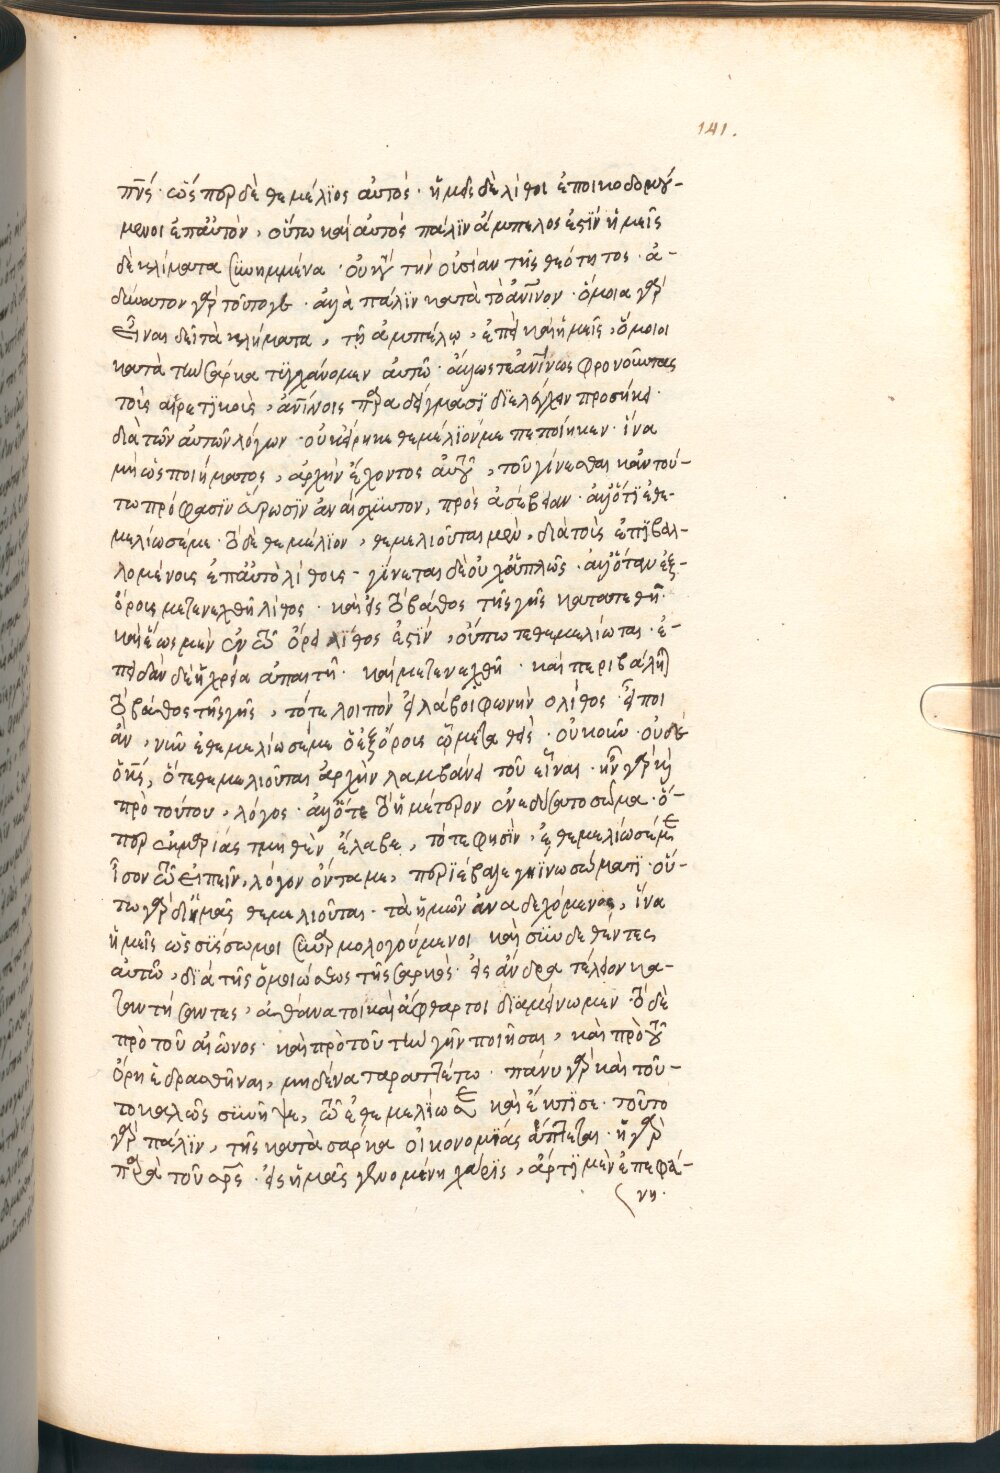 141.
πν̅ς· ὥσπερ δὲ θεμέλϊος αὐτός· ἡμεῖς δὲ λίθοι ἐποικοδομού-
μενοι ἐπ' αὐτὸν, οὕτω καὶ αὐτός πάλϊν ἄμπελος ἐστὶν ἡμεῖς
δὲ κλίματα συνημμένα· οὐ κτ̀ τὴν οὐσίαν τῆς θεότητος· ἀ-
δύνατον γὰρ τοῦτό γε· ἀλλὰ πάλϊν κατὰ τὸ ἀν̅ινον· ὅμοια γὰρ
εἶναι δεῖ τὰ κλήματα, τῇ ἀμπέλῳ, ἐπεὶ καὶ ἡμεῖς, ὅμοιοι
κατὰ τὴν σάρκα τυγχάνομεν αὐτῷ· ἄλλως τε ἀν̅ίνως φρονοῦντας
τοὺς αἱρετϊκοὺς, ἀν̅ίνοις παραδείγμασϊ διελέγχειν προσήκει·
διὰ τῶν αὐτῶν λόγων· οὐκ εἴρηκε θεμέλϊόν με πεποίηκεν· ἵνα
μὴ ὡς ποιήματος, ἀρχὴν ἔχοντος αὐτοῦ, τοῦ γίνεσθαι κἂν τού-
τω πρόφασϊν εὕρωσϊν ἀναίσχυντον, πρὸς ἀσέβειαν· ἀλλ' ὅτϊ ἐθε-
μελίωσέ με· τὸ δὲ θεμέλϊον, θεμελιοῦται μὲν, διὰ τοὺς ἐπϊβαλ-
λομένοις ἐπ' αὐτὸ λίθοις- γίνεται δὲ οὐχ ἁπλῶς· ἀλλ' ὅταν ἐξ-
ὄρους μετενεχθῇ λίθος· καὶ εἰς τὸ βάθος τῆς γῆς κατατεθῇ·
καὶ ἕως μὲν ἐν τῷ ὄρει λίθος ἐστὶν, οὔπω τεθεμελίωται· ἐ-
πειδὰν δὲ ἡ χρεία ἀπαιτῇ· καὶ μετενεχθῇ· καὶ περιβληθῇ
τὸ βάθος τῆς γῆς, τότε λοιπὸν εἰ λάβοι φωνὴν ὁ λίθος εἴποι
ἂν, νῦν ἐθεμελίωσέ με ὁ ἐξ ὄρους ὧδε μεταθεὶς· οὐκοῦν· οὐδὲ
ὁ κς̅, ὅτε θεμελιοῦται ἀρχὴν λαμβάνει τοῦ εἶναι· ἦν γὰρ καὶ
πρὸ τούτου, λόγος· ἀλλ' ὅτε τὸ ἡμέτερον ἐνεδύσατο σῶμα· ὅ-
περ ἐκ μαρίας τμηθὲν ἔλαβε, τότε φησὶν, ἐθεμελίωσέ με
ἶσον τῷ εἰπεῖν, λόγον ὄντα με, περϊέβαλε γηΐνω σώματϊ· οὕ-
τω γὰρ δι' ἡμᾶς θεμελιοῦται· τὰ ἡμῶν ἀναδεχόμενος, ἵνα
ἡμεῖς ὡς σύσσωμοι συναρμολογούμενοι καὶ συνδεθέντες
αὐτῷ, διὰ τῆς ὁμοιώσεως τῆς σαρκὸς· εἰς ἄνδρα τέλειον κα-
ταντήσαντες, ἀθάνατοι καὶ ἄφθαρτοι διαμείνωμεν· τὸ δὲ
πρὸ τοῦ αἰῶνος· καὶ πρὸ τοῦ τὴν γῆν ποιῆσαι, καὶ πρὸ τοῦ
ὄρη ἑδρασθῆναι, μηδένα ταραττέτω· πάνυ γὰρ καὶ τοῦ-
το καλῶς συνῆψε, τῷ ἐθεμελίωσε καὶ ἔκτϊσε· τοῦτο
γὰρ πάλϊν, τῆς κατὰ σάρκα οἰκονομίας ἅπτεται· ἡ γὰρ
παρὰ τοῦ σρ̅ς· εἰς ἡμᾶς γενομένη χάρϊς, ἄρτϊ μὲν ἐπεφά-
νη·